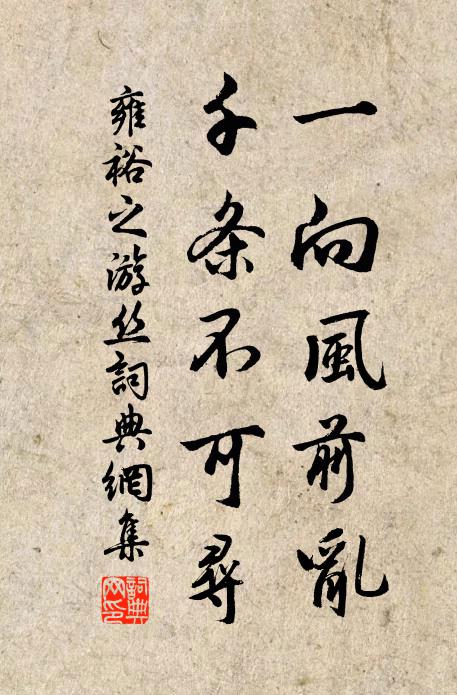 一向風前亂
千条不可尋
雍裕之游丝詞典網集
詞典
网印